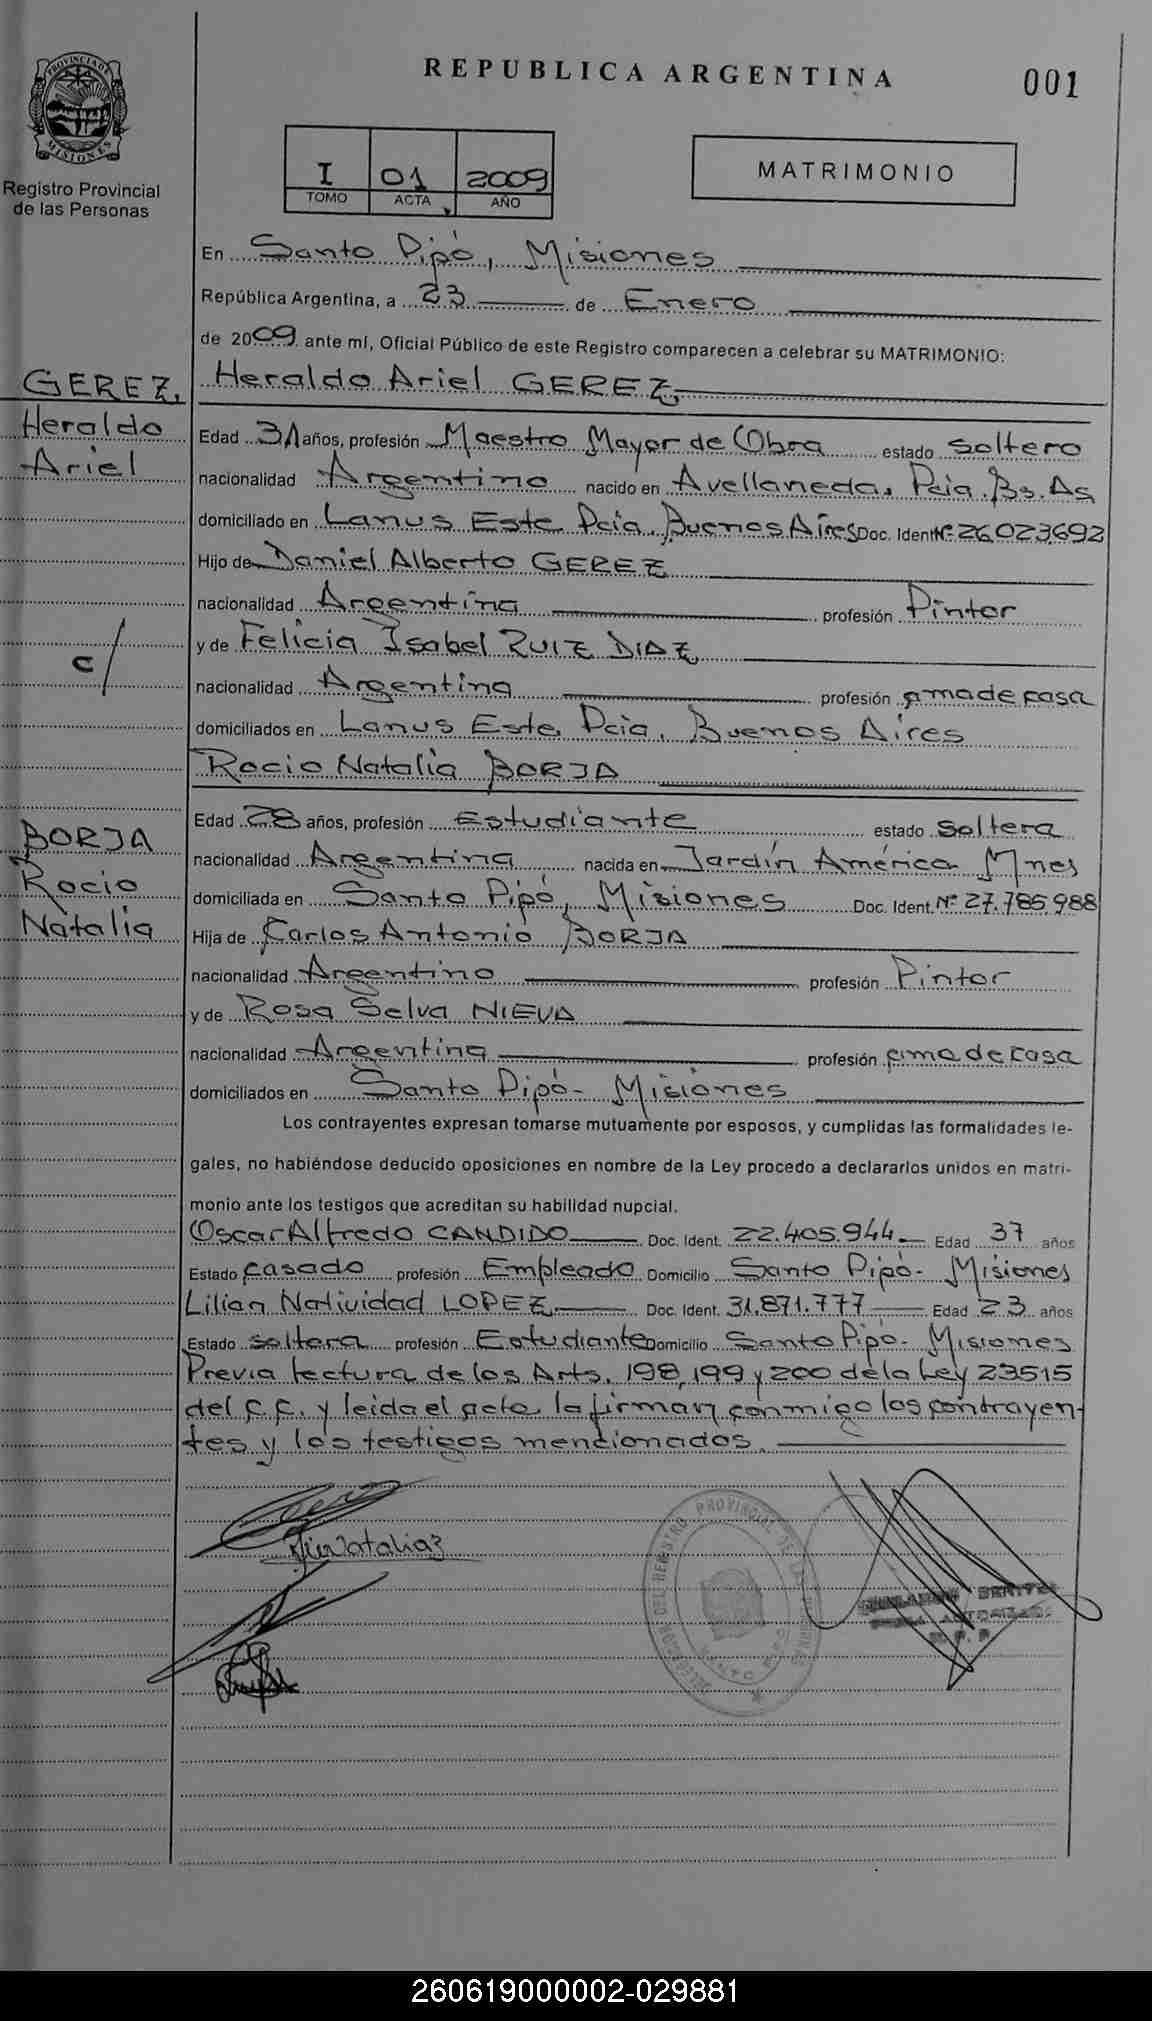 REPUBLICA ARGENTINA
001
PROVINCIA DE
MISIONES
Registro Provincial
de las Personas
I 01 2009
TOMO ACTA AÑO
MATRIMONIO
En Santo Pipó, Misiones
República Argentina, a 23 de Enero
de 2009 ante mí, Oficial Público de este Registro comparecen a celebrar su MATRIMONIO:
GEREZ,
Heraldo
Ariel
Heraldo Ariel GEREZ
Edad 31 años, profesión Maestro Mayor de Obra estado soltero
nacionalidad Argentino nacido en Avellaneda, Pcia. Bs. As
domiciliado en Lanus Este Pcia. Buenos Aires Doc. Ident Nº 26.023.692
Hijo de Daniel Alberto GEREZ
nacionalidad Argentina profesión Pintor
y de Felicia Isabel RUIZ DIAZ
c/
nacionalidad Argentina profesión ama de casa
domiciliados en Lanus Este, Pcia. Buenos Aires
Rocio Natalia BORJA
BORJA
Rocio
Natalia
Edad 28 años, profesión Estudiante estado soltera
nacionalidad Argentina nacida en Jardín América Mnes
domiciliada en Santo Pipó, Misiones Doc. Ident. Nº 27.785.988
Hija de Carlos Antonio BORJA
nacionalidad Argentino profesión Pintor
y de Rosa Selva NIEVA
nacionalidad Argentina profesión ama de casa
domiciliados en Santo Pipó- Misiones
Los contrayentes expresan tomarse mutuamente por esposos, y cumplidas las formalidades le-
gales, no habiéndose deducido oposiciones en nombre de la Ley procedo a declararlos unidos en matri-
monio ante los testigos que acreditan su habilidad nupcial.
Oscar Alfredo CANDIDO Doc. Ident. 22.405.944 Edad 37 años
Estado casado profesión Empleado Domicilio Santo Pipó- Misiones
Lilian Natividad LOPEZ Doc. Ident. 31.871.777 Edad 23 años
Estado soltera profesión Estudiante Domicilio Santo Pipó- Misiones
Previa lectura de los Arts. 198, 199 y 200 de la Ley 23515
del C.C. y leida el acta, la firman conmigo los contrayen-
tes y los testigos mencionados.
REGISTRO PROVINCIAL DE LAS PERSONAS
260619000002-029881